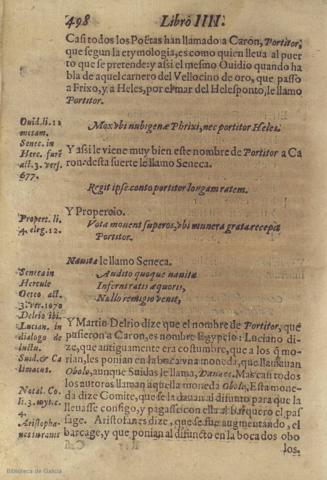 498 Libro IIII.
Casi todos los Poëtas han llamado a Caròn, Portitor,
que segun la etymologia, es como quien lleua al puer
to que se pretende: y assi el mesmo Ouidio quando ha
bla de aquel carnero del Vellocino de oro, que passo
a Frixo, y a Heles, por el mar del Helesponto, le llamo
Portitor.
Ouid. li. 12
metam.
Mox vbi nubigenæ Phrixi, nec portitor Heles.
Senec. in
Herc. furë
act. 3. vers.
677.
Y assi le viene muy bien este nombre de Portitor a Ca
ron: desta suerte le llamo Seneca.
Regit ipse conto portitor longam ratem.
Propert. li.
4. eleg. 12.
Y Propercio.
Vota mouent superos, vbi munera grata recepit
Portitor.
Nauita le llamo Seneca.
Seneca in
Hercule
Octeo. act.
3. ver. 1070
Audito quoque nauita
Inferni ratis æquoris,
Nullo remigio venit,
Delrio ibi.
Lucian. in
dialogo de
luctu.
Suid. & Ca
limacus.
Natal. Co.
li. 3. myt. c.
4.
Aristopha-
nes in ranis
Y Martin Delrio dize que el nombre de Portitor, que
pusieron a Caron, es nombre Egypcio: Luciano di-
ze, que antiguamente era costumbre, que a los q̃ mo-
rian, les ponian en la boca vna moneda, que llamauan
Obolo, aunque Suidas le llama, Danace. Mas casi todos
los autores llaman aquella moneda Obolo. Esta mone-
da dize Comite, que se la dauan al difunto para que la
lleuasse consigo, y pagasse con ella al barquero el pas-
sage. Aristofanes dize, que se fue augmentando, el
barcage, y que ponian al difuncto en la boca dos obo
los.
Biblioteca de Galicia